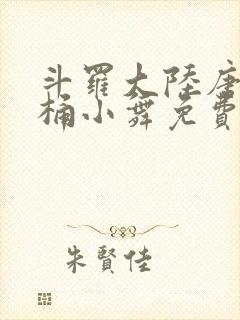 斗羅大陸唐
桶小舞免費
朱賢佳